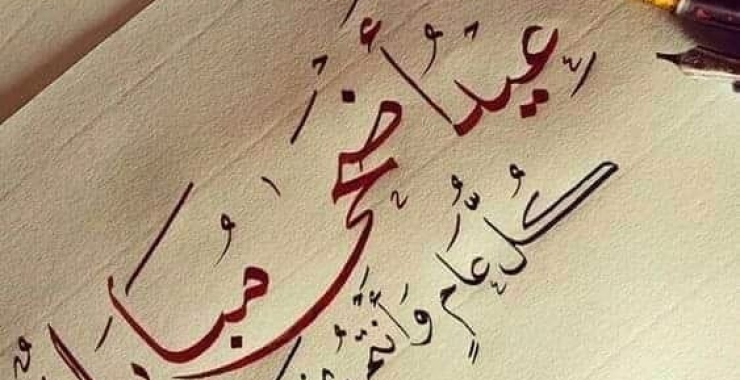 عيدُ أضحى مُبارك
كُلُّ عَامٍ وَأَنْتُمْ